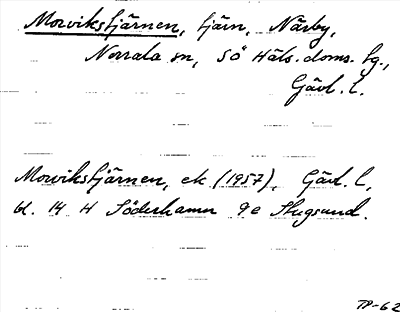 Morvikstjärnen, tjärn, Närby,
Norrala sn, Sö Häls. doms. fg.,
Gävl. l.
Morvikstjärnen, ek. (1957), Gävl. l,
bl. 14 H Söderhamn 9e Stugsund.
TP-62